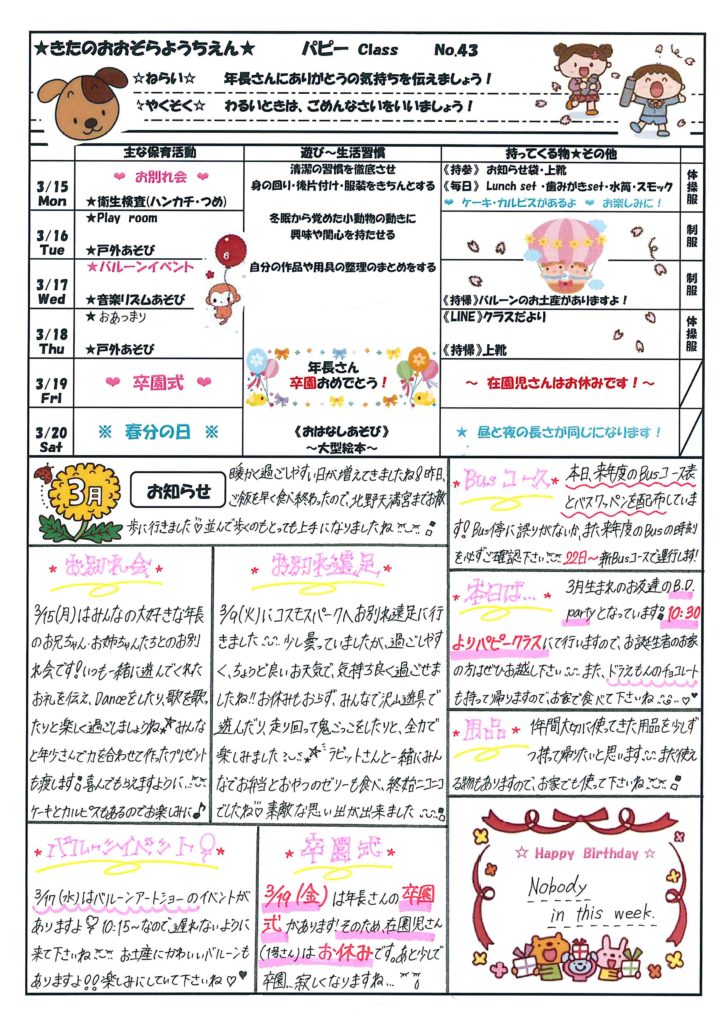 ★きたのおおぞらようちえん★ パピー Class No.43
☆ねらい☆ 年長さんにありがとうの気持ちを伝えましょう!
☆やくそく☆ わるいときは、ごめんなさいをいいましょう!
主な保育活動 遊び~生活習慣 持ってくる物★その他
3/15
Mon
❤ お別れ会 ❤
★衛生検査(ハンカチ・つめ)
清潔の習慣を徹底させ
身の回り・後片付け・服装をきちんとする
《持参》 お知らせ袋・上靴
《毎日》 Lunch set ・歯みがきset・水筒・スモック
❤ ケーキ・カルピスがあるよ ❤ お楽しみに!
体操服
3/16
Tue
★Play room
★戸外あそび
冬眠から覚めた小動物の動きに
興味や関心を持たせる
制服
3/17
Wed
★バルーンイベント
★音楽リズムあそび
自分の作品や用具の整理のまとめをする
《持帰》バルーンのお土産がありますよ!
制服
3/18
Thu
★おあつまり
★戸外あそび
《LINE》クラスだより
《持帰》上靴
体操服
3/19
Fri
❤ 卒園式 ❤
年長さん
卒園おめでとう!
~ 在園児さんはお休みです!~
3/20
Sat
※ 春分の日 ※
《おはなしあそび》
~大型絵本~
★ 昼と夜の長さが同じになります!
3月
お知らせ
暖かく過ごしやすい日が増えてきましたね!昨日、
ご飯を早く食べ終わったので、北野天満宮までお散
歩に行きました 並んで歩くのもとっても上手になりましたね
*Bus コース*
本日、来年度のBusコース表
とバスワッペンを配布していま
す!Bus停に誤りがないか、また来年度のBusの時刻
を必ずご確認下さい 22日~新Busコースで運行します!
*お別れ会*
3/15(月)はみんなの大好きな年長
のお兄ちゃん・お姉ちゃんたちとのお別
れ会です!いつも一緒に遊んでくれた
お礼を伝え、Danceをしたり、歌を歌っ
たりと楽しく過ごしましょうね みんな
と年少さんで力を合わせて作ったプレゼント
も渡します!喜んでもらえますように…
ケーキとカルピスもあるのでお楽しみに♪
*お別れ遠足*
3/9(火)にコスモスパークへお別れ遠足に行
きました 少し曇っていましたが、過ごしやす
く、ちょうど良いお天気で、気持ち良く過ごせま
したね!!お休みもおらず、みんなで沢山遊具で
遊んだり、走り回って鬼ごっこをしたりと、全力で
楽しみました ラビットさんと一緒にみん
なでお弁当とおやつのゼリーも食べ、終始ニコニコ
でしたね♡素敵な思い出が出来ました
*本日は…*
3月生まれのお友達のB.D.
partyとなっています!10:30
よりパピークラスにて行いますので、お誕生者のお家
の方はぜひお越し下さい また、ドラえもんのチョコレート
も持って帰りますので、お家で食べて下さいね ♡
*用品*
1年間大切に使ってきた用品を少しず
つ持って帰りたいと思います また使え
る物もありますので、お家でも使って下さいね
*バルーンイベント*
3/17(水)はバルーンアートショーのイベントが
ありますよ 10:15~なので、遅れないように
来て下さいね お土産にかわいいバルーンも
ありますよ!!楽しみにしていて下さいね♡♡
*卒園式*
3/19(金)は年長さんの卒園
式があります!そのため、在園児さん
(1号さん)はお休みです。あと少しで
卒園…寂しくなりますね…
☆ Happy Birthday ☆
Nobody
in this week.